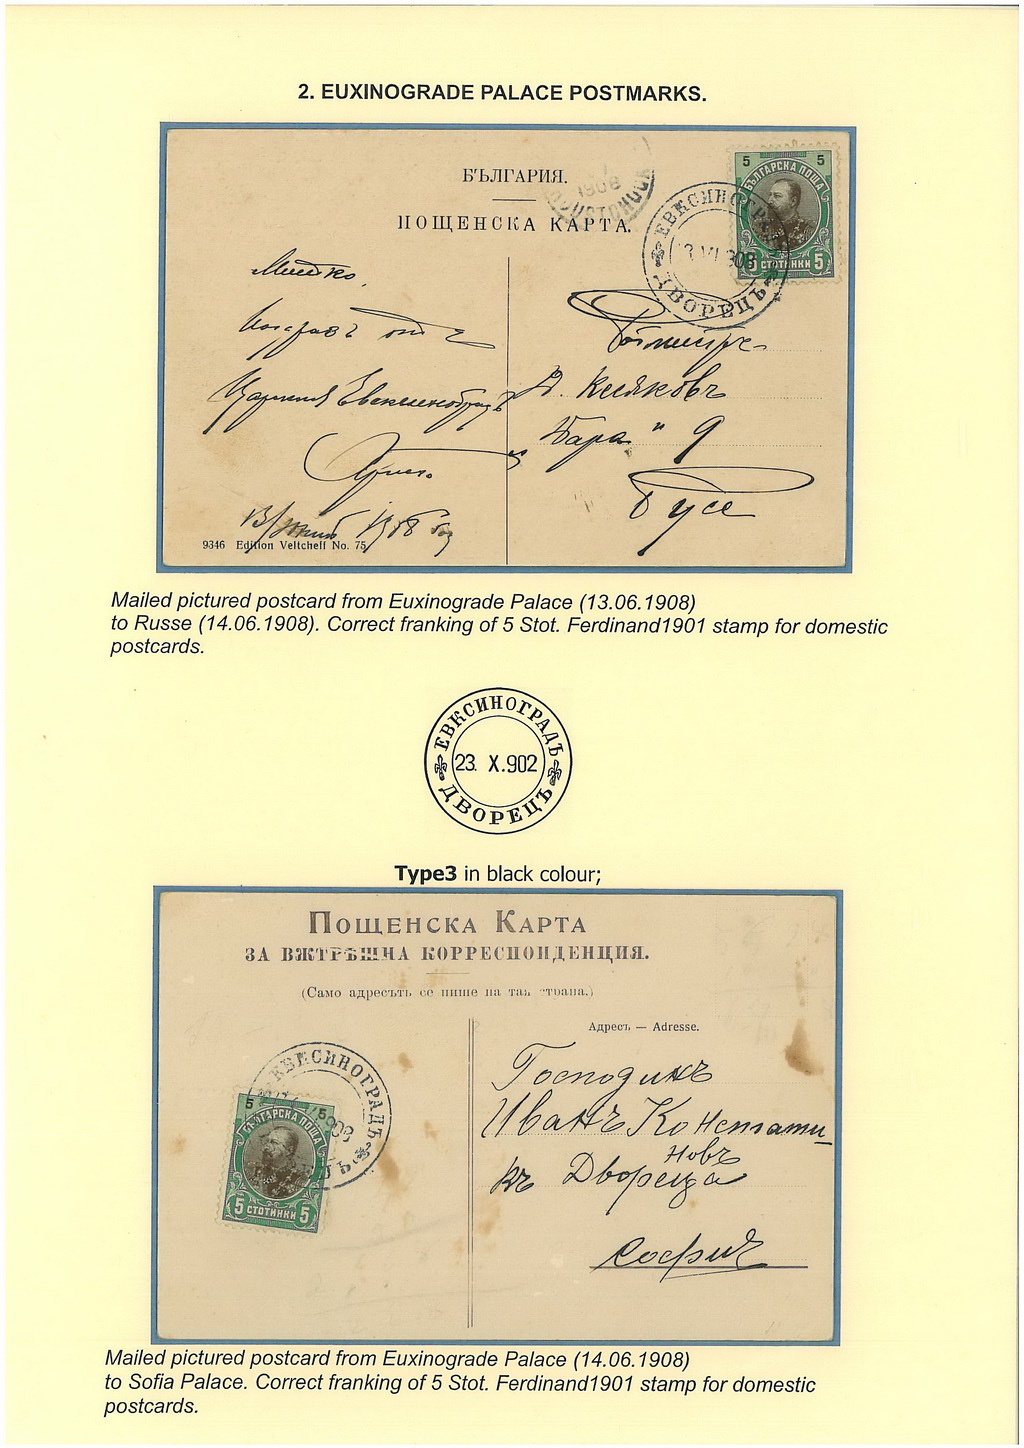 2. EUXINOGRADE PALACE POSTMARKS.
БЪЛГАРИЯ.
ПОЩЕНСКА КАРТА.
1908
5 5
БЪЛГАРСКА ПОЩА
5 СТОТИНКИ 5
ЕВКСИНОГРАДЪ
13 VI 908
ДВОРЕЦЪ
Царския Евксиноградъ
1908
Ротмистръ
Д. Кисяковъ
"Вара" 9
Русе
9346 Edition Veltcheff No. 75
Mailed pictured postcard from Euxinograde Palace (13.06.1908)
to Russe (14.06.1908). Correct franking of 5 Stot. Ferdinand1901 stamp for domestic
postcards.
ЕВКСИНОГРАДЪ
23. X.902
ДВОРЕЦЪ
Type3 in black colour;
ПОЩЕНСКА КАРТА
ЗА ВЖТРѢШНА КОРРЕСПОНДЕНЦИЯ.
(Само адресътъ се пише на тая страна.)
Адресъ — Adresse.
ЕВКСИНОГРАДЪ
908
5 5
БЪЛГАРСКА ПОЩА
5 СТОТИНКИ 5
Господинъ
Иванъ Константи
новъ
въ Двореца
София
Mailed pictured postcard from Euxinograde Palace (14.06.1908)
to Sofia Palace. Correct franking of 5 Stot. Ferdinand1901 stamp for domestic
postcards.